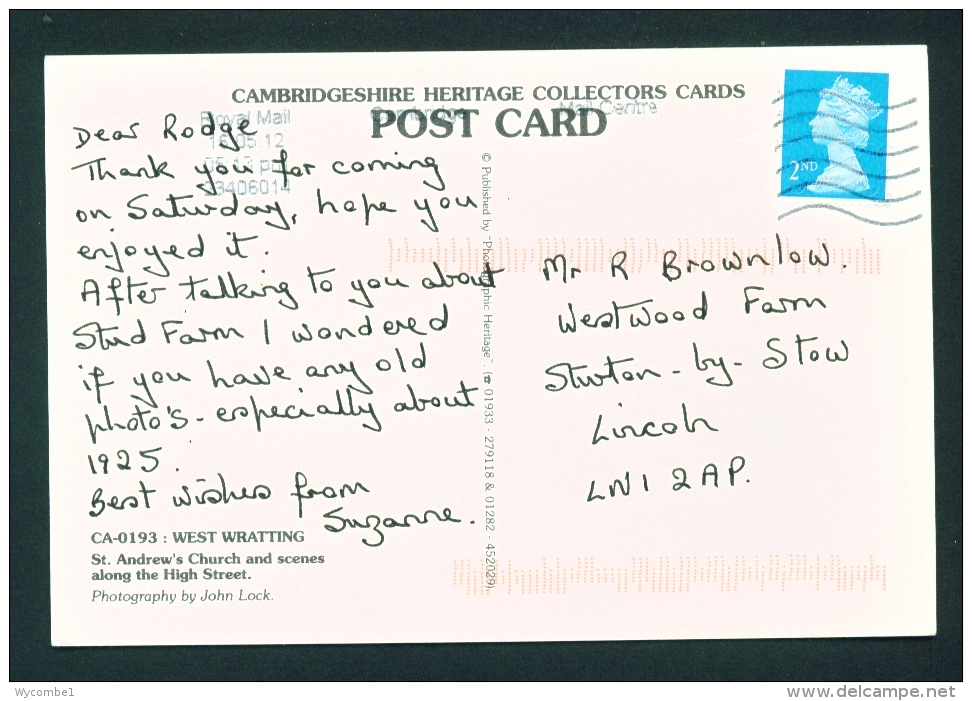 CAMBRIDGESHIRE HERITAGE COLLECTORS CARDS
POST CARD
Royal Mail
Cambridge
Mail Centre
03406014
2ND
Dear Rodge
Thank you for coming
on Saturday, hope you
enjoyed it.
After talking to you about
Stud Farm I wondered
if you have any old
photo's - especially about
1925.
Best wishes from
Suzanne.
© Published by "Photographic Heritage". (☎ 01933 - 279118 & 01282 - 452029).
Mr R Brownlow.
Westwood Farm
Sturton-by-Stow
Lincoln
LN1 2AP.
CA-0193 : WEST WRATTING
St. Andrew's Church and scenes
along the High Street.
Photography by John Lock.
Wycombe1
www.delcampe.net